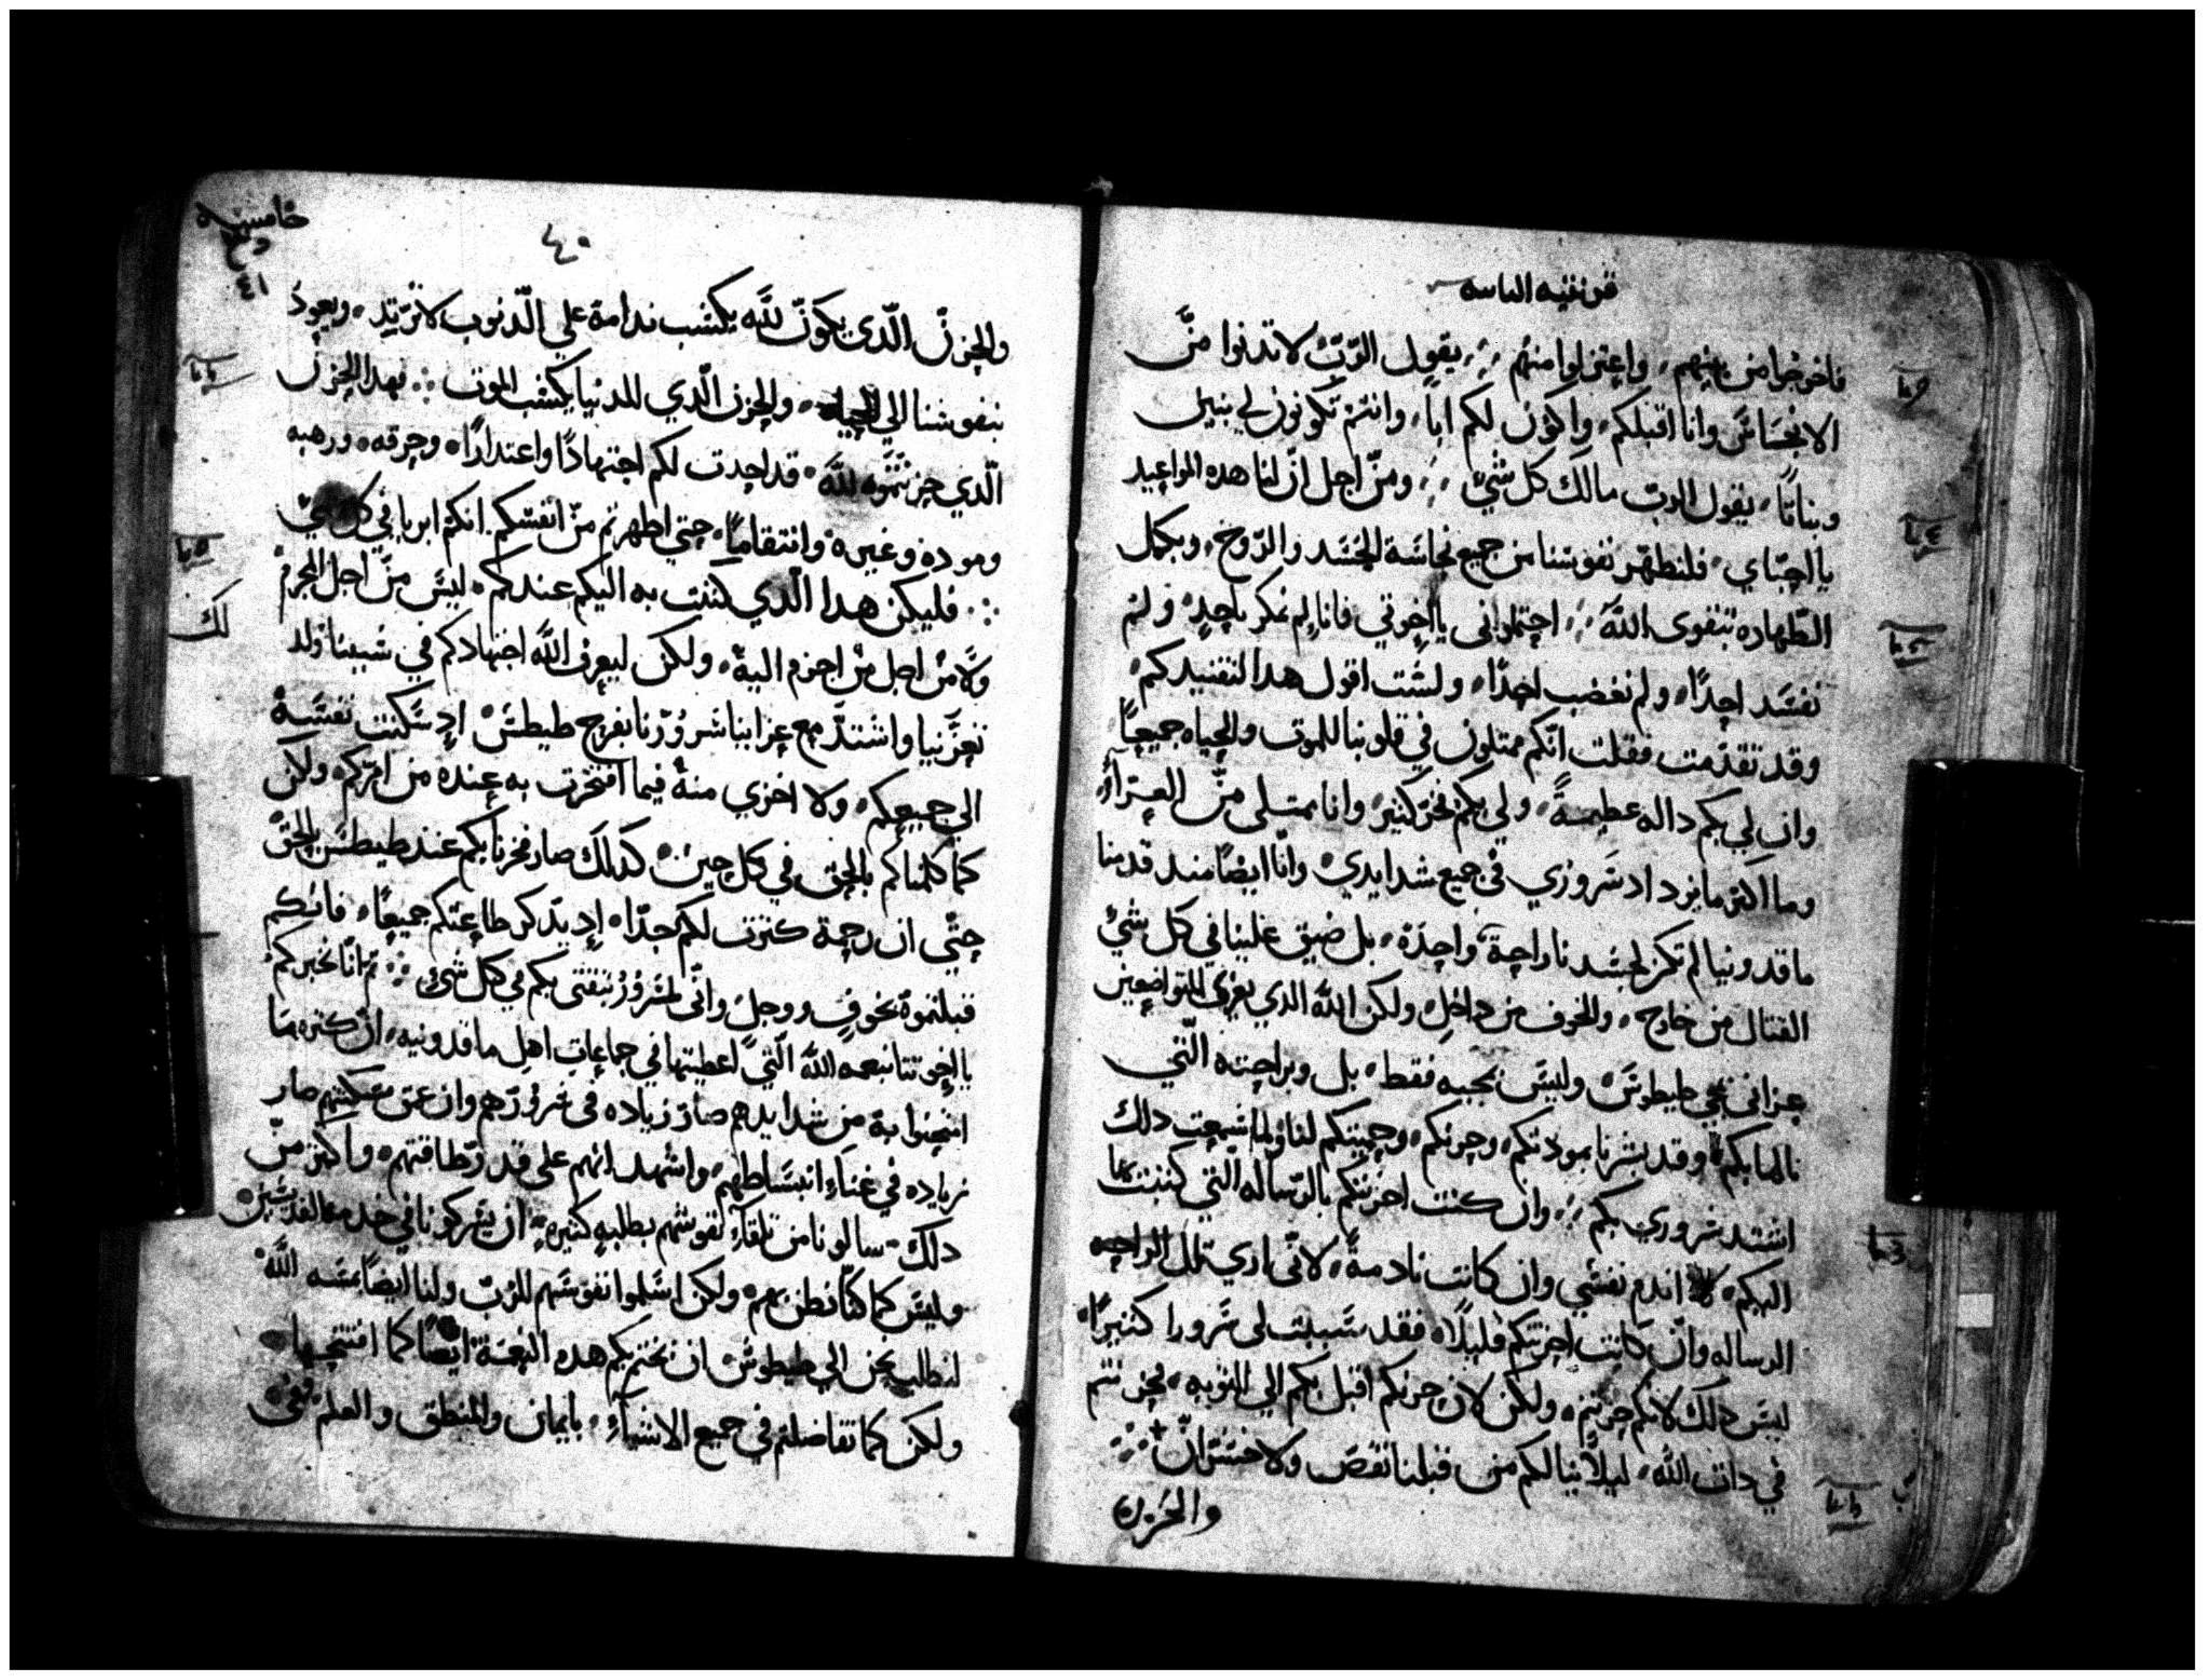 قرنتيه الثانيه
فاخرجوا من بينهم، واعتزلوا منهم ؛ يقول الرّبّ لا تدنوا منّ
الانجاس وانا اقبلكم، واكون لكم ابًا، وانتم تكونون لي بنين
وبناتًا، يقول الربّ مالك كل شيّ ؛ ومن اجل انّ لنا هده المواعيد
يا احبّاي، فلنطهّر نفوسنا من جميع نجاسة الجسد والرّوح، وبكمل
الطّهاره بتقوى اللّه ؛ احتملوانى يا اخوتي فانا لم نمكر باحدٍ، ولم
نفسد احدًا، ولم نغضب احدًا، ولست اقول هدا لتفنيدكم،
وقد تقدّمت فقلت انّكم ممتلون في قلوبنا للموت والحياه جميعًا
وان لي بكم داله عظيمةً، ولي بكم فخر كثير، وانا ممتلى منّ العزاؤ،
وما اكثر ما يزداد سروري في جميع شدايدي، وانّا ايضًا مند قدمنا
ماقدونيا لم تكن لجسدنا راحة واحدة، بل ضيق علينا في كل شيّ
القتال من خارج، والخوف من داخل، ولكن اللّه الدي يعزي المتواضعين
عزانى بمجي طيطوس، وليس بمجيه فقط، بل وبراحته الّتي
نالها بكم، وقد بشرنا بمودتكم، وحزنكم، وحميتكم لنا ولما سمعت دلك
اشتد سروري بكم ؛ وان كنت احزنتكم بالرّساله التي كتبت بها
اليكم، لا اندم نفسي وان كانت نادمةً، لانّى اري تلك الواحه
الرساله وانّ كانت احزنتكم قليلًا، فقد سببت لى سرورا كثيرًا،
ليس دلك لانكم حزنتم، ولكن لان حزنكم اقبل بكم الي التوبه، فحزنتم
في دات اللّه، ليلا ينالكم من قبلنا نقص ولا خسرانٌ
والحزن
خامسه
٤٠
٤١
والحزنّ الّدى يكونّ للّه يكسب ندامة على الّدنوب لا ترتد، ويعود
بنفوسنا الي الحياه، والحزن الّدي للدنيا يكسب الموت ؛ فهدا الحزن
الّدي حزنتموه للّه، قد احدت لكم اجتهادًا واعتدارًا، وحرقه، ورهبه
ومودة وغيرة وانتقامًا، حتي اظهرتم منّ انفسكم انكم ابريا في كل شيّ
؛ فليكن هدا الّدي كتبت به اليكم عندكم، ليس منّ اجل المجرم
ولا من اجل من اجرم اليه، ولكن ليعرف اللّه اجتهادكم في سببنا ولد لك
تعزّينا واشتدّ مع عزاينا سرورّنا بفرح طيطس، اد سكنت نفسة
الى جميعكم، ولا اخزي منة فيما افتخرت به عنده من امركم، ولكن
كما كلمناكم بالحق في كل حين، كدلك صار فخرنا بكم عند طيطس بالحق
حتّي ان رحمة كثرت لكم جدّا، اد يدّكر طاعتكم جميعًا، فانكم
قبلتموة بخوفٍ ووجل، وانّى لمسرور بثقتى بكم في كل شيّ ؛ ثم انّا نخبركم
يا اخوتنا بنعمه اللّه الّتي اعطيتها في جماعات اهل ماقدونيه، ان كثره ما
امتحنوا بة من شدايدهم صار زياده في سرورّهم وان عمق مسكنتهم صار
زياده في غناء انبساطهم، واشهد انهم على قدر طاقتهم، واكثر منّ
دلك، سالونا من تلقاء نفوسهم بطلبه كثيره، ان يشركونا في خدمة القديسين
وليس كما كنّا نظن بهم، ولكن اسلموا نفوسهم للربّ ولنا ايضًا بمسه اللّه،
لنطلب نحن الي طيطوس، ان نختم بكم هده النعمة ايضًا كما افتتحها،
ولكن كما تفاضلتم في جميع الاشياء، بايمان والمنطق والعلم، وفى